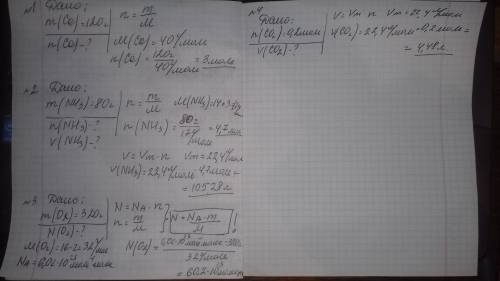 №1 Дано:
m(Ca)=120г
n(Ca)-?
n = m/M
M(Ca)=40г/моль
n(Ca)=120г/40г/моль=3моль
№2 Дано:
m(NH3)=80г
n(NH3)-?
V(NH3)-?
n = m/M M(NH3)=14+3=17г/моль
n(NH3)=80г/17г/моль=4,7моль
V = Vm·n Vm=22,4л/моль
V(NH3)=22,4л/моль·4,7моль=
=105,28л
№3 Дано:
m(O2)=320г
N(O2)-?
M(O2)=16·2=32г/моль
NA=6,02·10²³ моль
N=NA·n
n = m/M
N = NA·m/M !
N(O2)=6,02·10²³ ·320г/32г/моль
=60,2·10²³
№4 Дано:
n(CO2)=0,2моль
V(CO2)-?
V=Vm·n Vm=22,4л/моль
V(CO2)=22,4л/моль·0,2моль=
=4,48л